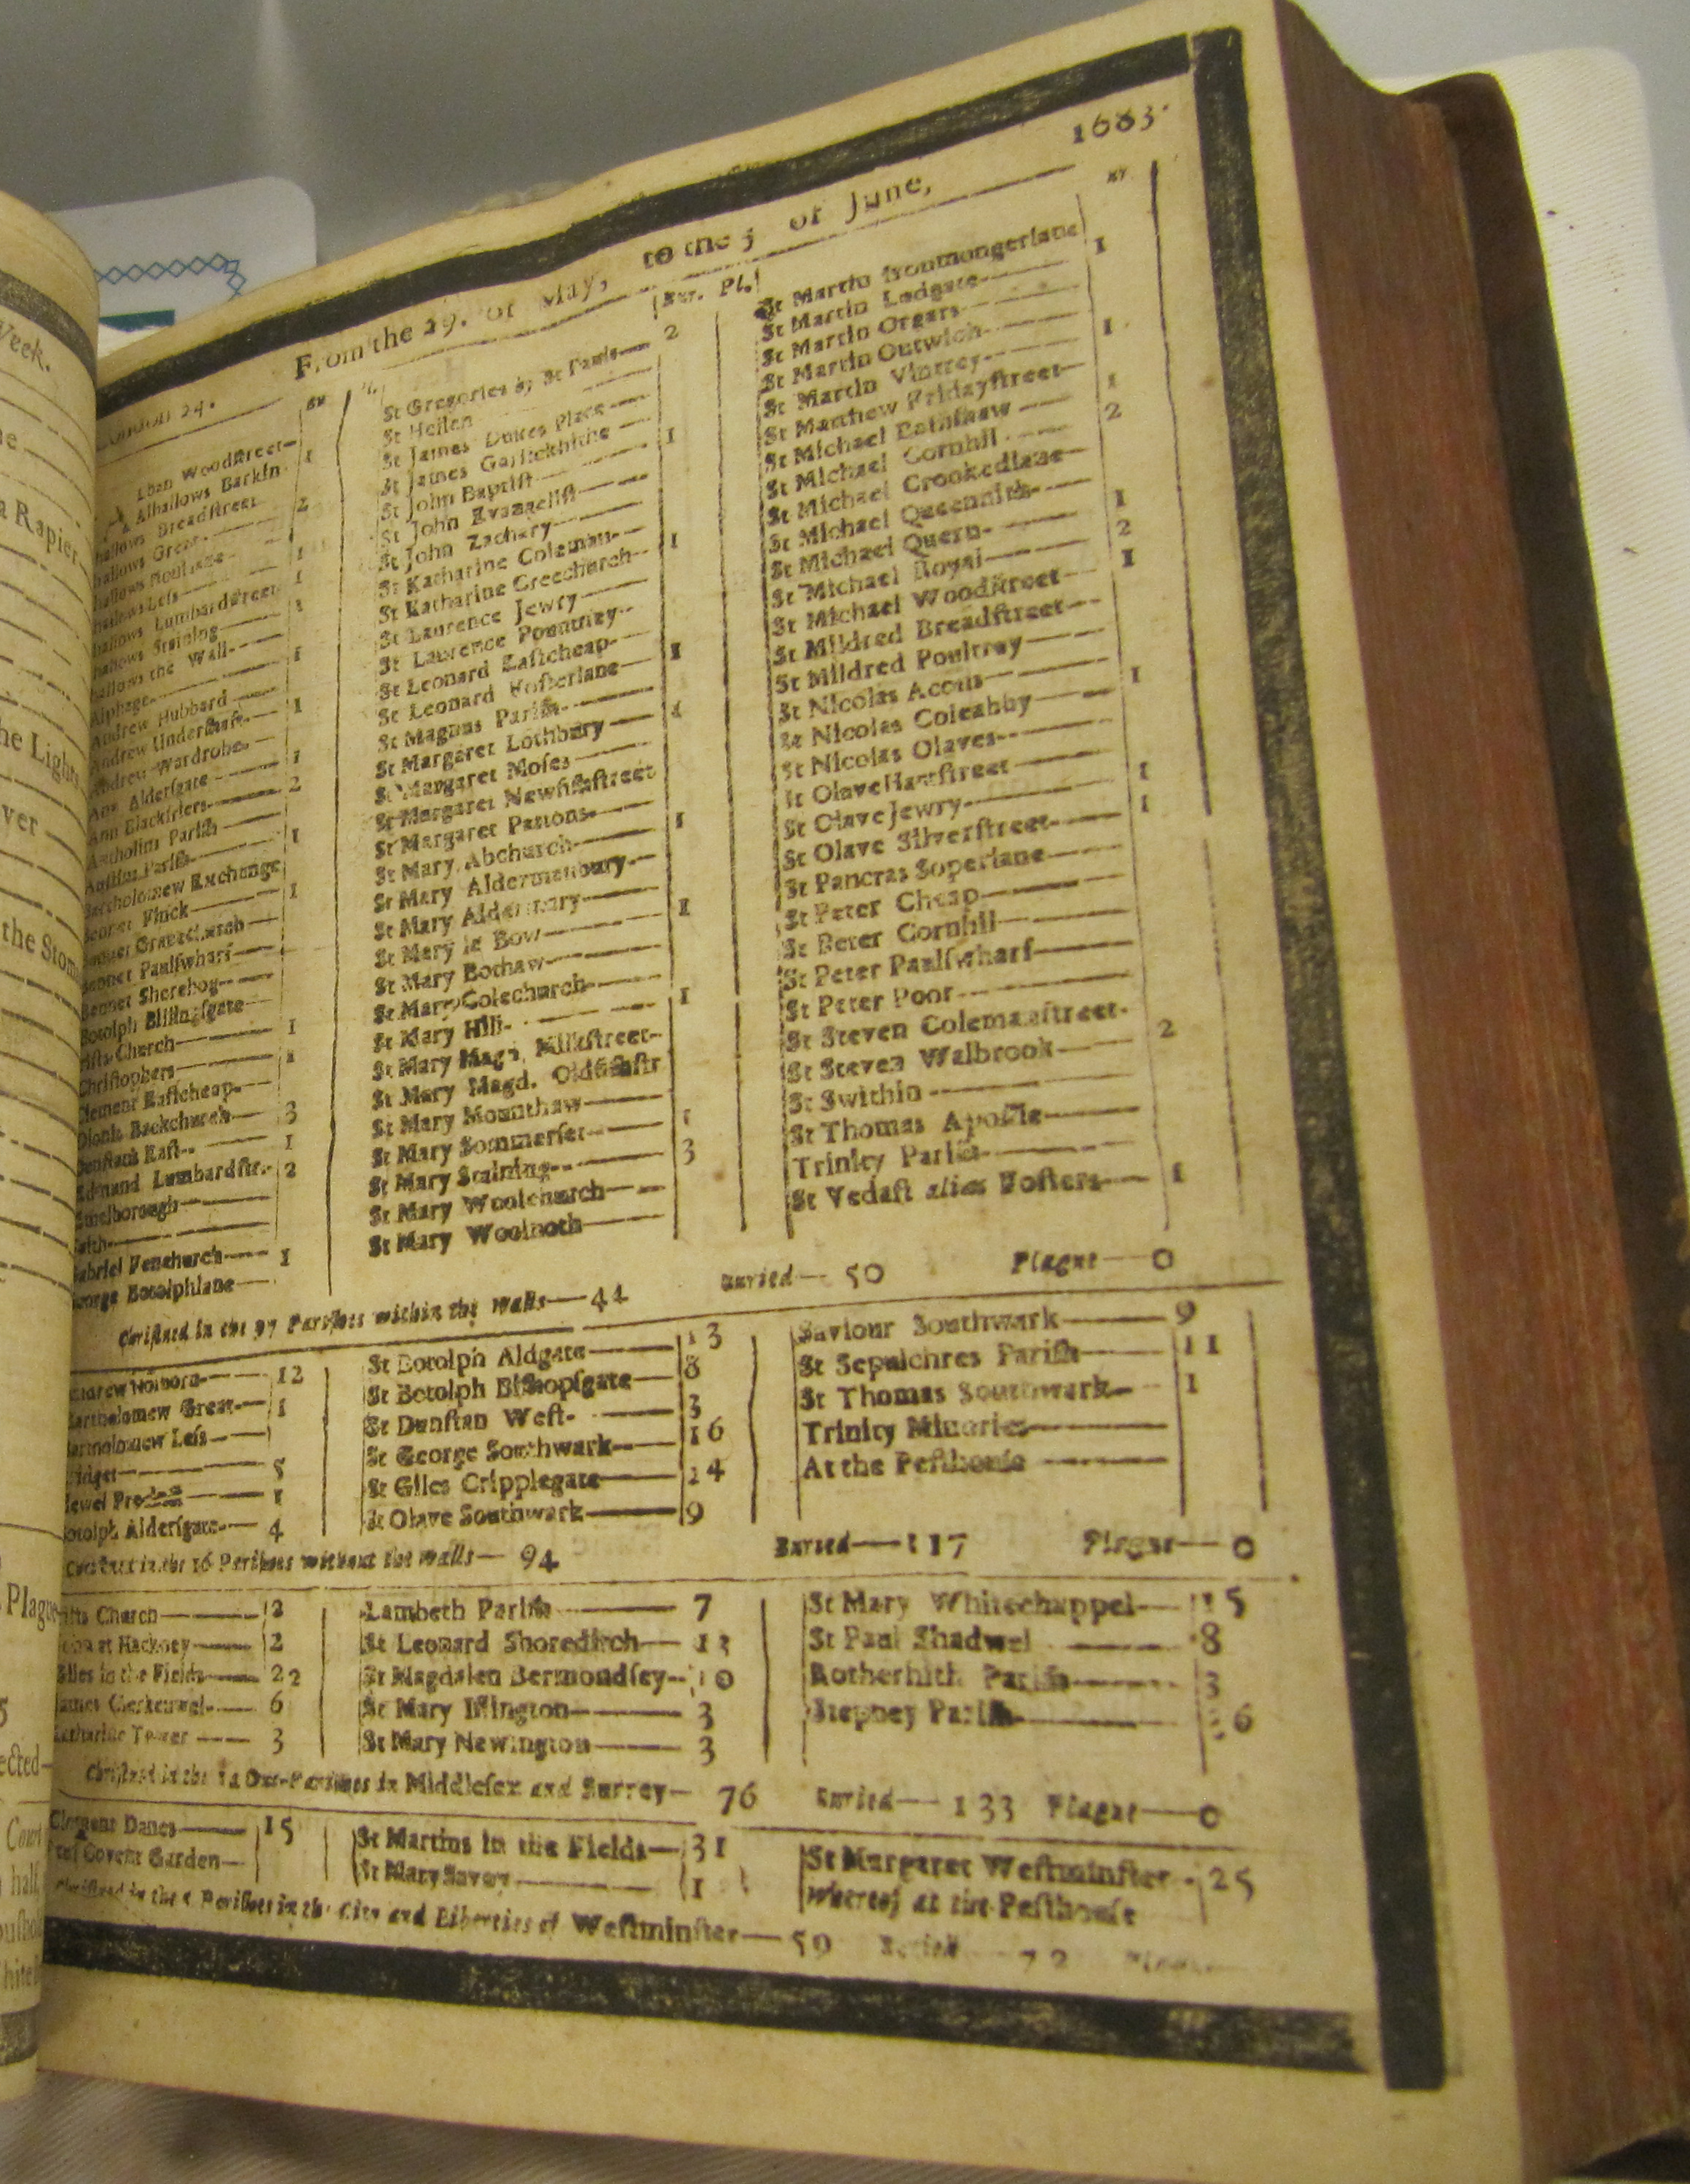 Week.
a Rapier
he Lights
ver
the Stom
Plagu
ected—
Cour
half
From the 29. of May, to the 5 of June, 1683.
London 24.
Bur. Pl.
Woodstreet—
Alhallows Barkin 1
Breadstreet
hallows Great 2
hallows Less 1
hallows Lumbardstreet 1
hallows Staining 1
hallows the Wall
Alphage 1
Andrew Hubbard
Andrew Undershaft 1
Andrew Wardrobe
Ann Aldersgate 1
Ann Blackfriers 2
Antholins Parish
Austins Parish 1
Bartholomew Exchange
Bennet Fhick 1
Bennet Gracechurch
Bennet Paulswharf
Bennet Sherehog
Botolph Billingsgate
rists Church 1
Christophers 1
Clement Eastcheap
Dionis Backchurch 3
Dunstans East 1
Edmund Lumbardstr. 2
thelborough
aith
abriel Fenchurch 1
eorge Botolphlane
St Gregories by St Pauls 2
St Hellen
St James Dukes Place
St James Garlickhithe 1
St John Baptist
St John Evangelist
St John Zachary
St Katharine Coleman 1
St Katharine Creechurch
St Laurence Jewry
St Laurence Pountney
St Leonard Eastcheap 1
St Leonard Fosterlane
St Magnus Parish 1
St Margaret Lothbury
St Margaret Moses
St Margaret Newfishstreet
St Margaret Pattons 1
St Mary Abchurch
St Mary Aldermanbury
St Mary Aldermary 1
St Mary le Bow
St Mary Bothaw
St Mary Colechurch 1
St Mary Hill
St Mary Magd. Milkstreet
St Mary Magd. Oldfishstr
St Mary Mounthaw
St Mary Sommerset 1
St Mary Staining 3
St Mary Woolchurch
St Mary Woolnoth
St Martin Ironmongerlane
St Martin Ludgate 1
St Martin Orgars
St Martin Outwich
St Martin Vintrey 1
St Matthew Fridaystreet
St Michael Bassishaw 1
St Michael Cornhil 2
St Michael Crookedlane
St Michael Queenhith
St Michael Quern 1
St Michael Royal 2
St Michael Woodstreet 1
St Mildred Breadstreet
St Mildred Poultrey
St Nicolas Acons
St Nicolas Coleabby 1
St Nicolas Olaves
St Olave Hartstreet
St Olave Jewry 1
St Olave Silverstreet 1
St Pancras Soperlane
St Peter Cheap
St Peter Cornhil
St Peter Paulswharf
St Peter Poor
St Steven Colemanstreet
St Steven Walbrook 2
St Swithin
St Thomas Apostle
Trinity Parish
St Vedast alias Fosters 1
Christned in the 97 Parishes within the Walls—44 Buried—50 Plague—0
Andrew Holborn 12
Bartholomew Great 1
Bartholomew Less
ridget 5
dewel Precinct 1
otolph Aldersgate 4
St Botolph Aldgate 13
St Botolph Bishopsgate 8
St Dunstan West 3
St George Southwark 16
St Giles Cripplegate 14
St Olave Southwark 9
Saviour Southwark 9
St Sepulchres Parish 11
St Thomas Southwark 1
Trinity Minories
At the Pesthouse
Christned in the 16 Parishes without the Walls—94 Buried—117 Plague—0
rists Church 2
John at Hackney 2
Giles in the Fields 22
James Clerkenwel 6
Katharine Tower 3
Lambeth Parish 7
St Leonard Shoreditch 13
St Magdalen Bermondsey 10
St Mary Islington 3
St Mary Newington 3
St Mary Whitechappel 15
St Paul Shadwel 8
Rotherhith Parish 3
Stepney Parish 6
Christned in the 14 Out-Parishes in Middlesex and Surrey—76 Buried—133 Plague—0
Clement Danes 15
Paul Covent Garden
St Martins in the Fields 31
St Mary Savoy 1
St Margaret Westminster 25
Whereof at the Pesthouse
Christned in the 5 Parishes in the City and Liberties of Westminster—59 Buried 72 Plague